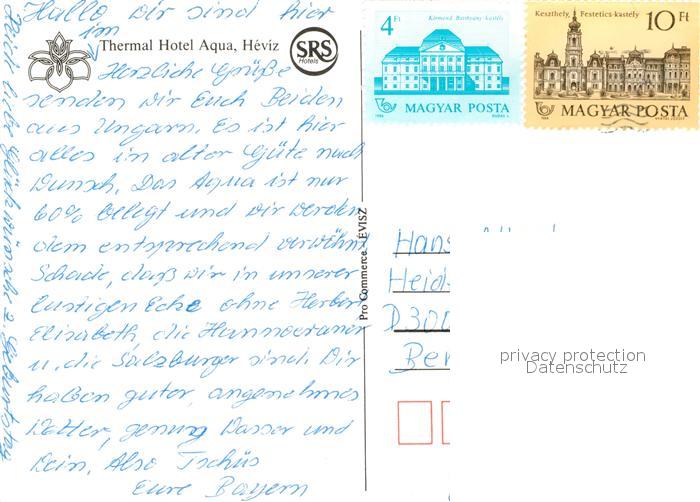 Hallo wir sind hier
im
Thermal Hotel Aqua, Hévíz
SRS
Hotels
Herzliche Grüße
senden wir Euch Beiden
aus Ungarn. Es ist hier
alles in alter Güte nach
Wunsch. Das Aqua ist nur
60% belegt und wir werden
dem entsprechend verwöhnt
Schade, daß wir in unserer
lustigen Ecke ohne Herbert
Elisabeth, die Hannoveraner
u. die Salzburger sind. Wir
haben guter, angenehmes
Wetter, genug Wasser und
Wein. Also Tschüs
Eure Bayern
liebe Glückwünsche z. Geburtstag
Pro Commerce HÉVÍZ
4 Ft
Körmend Batthyány-kastély
MAGYAR POSTA
1986
Keszthely, Festetics-kastély
10 Ft
MAGYAR POSTA
Hans
Heid
D300
Ber
privacy protection
Datenschutz